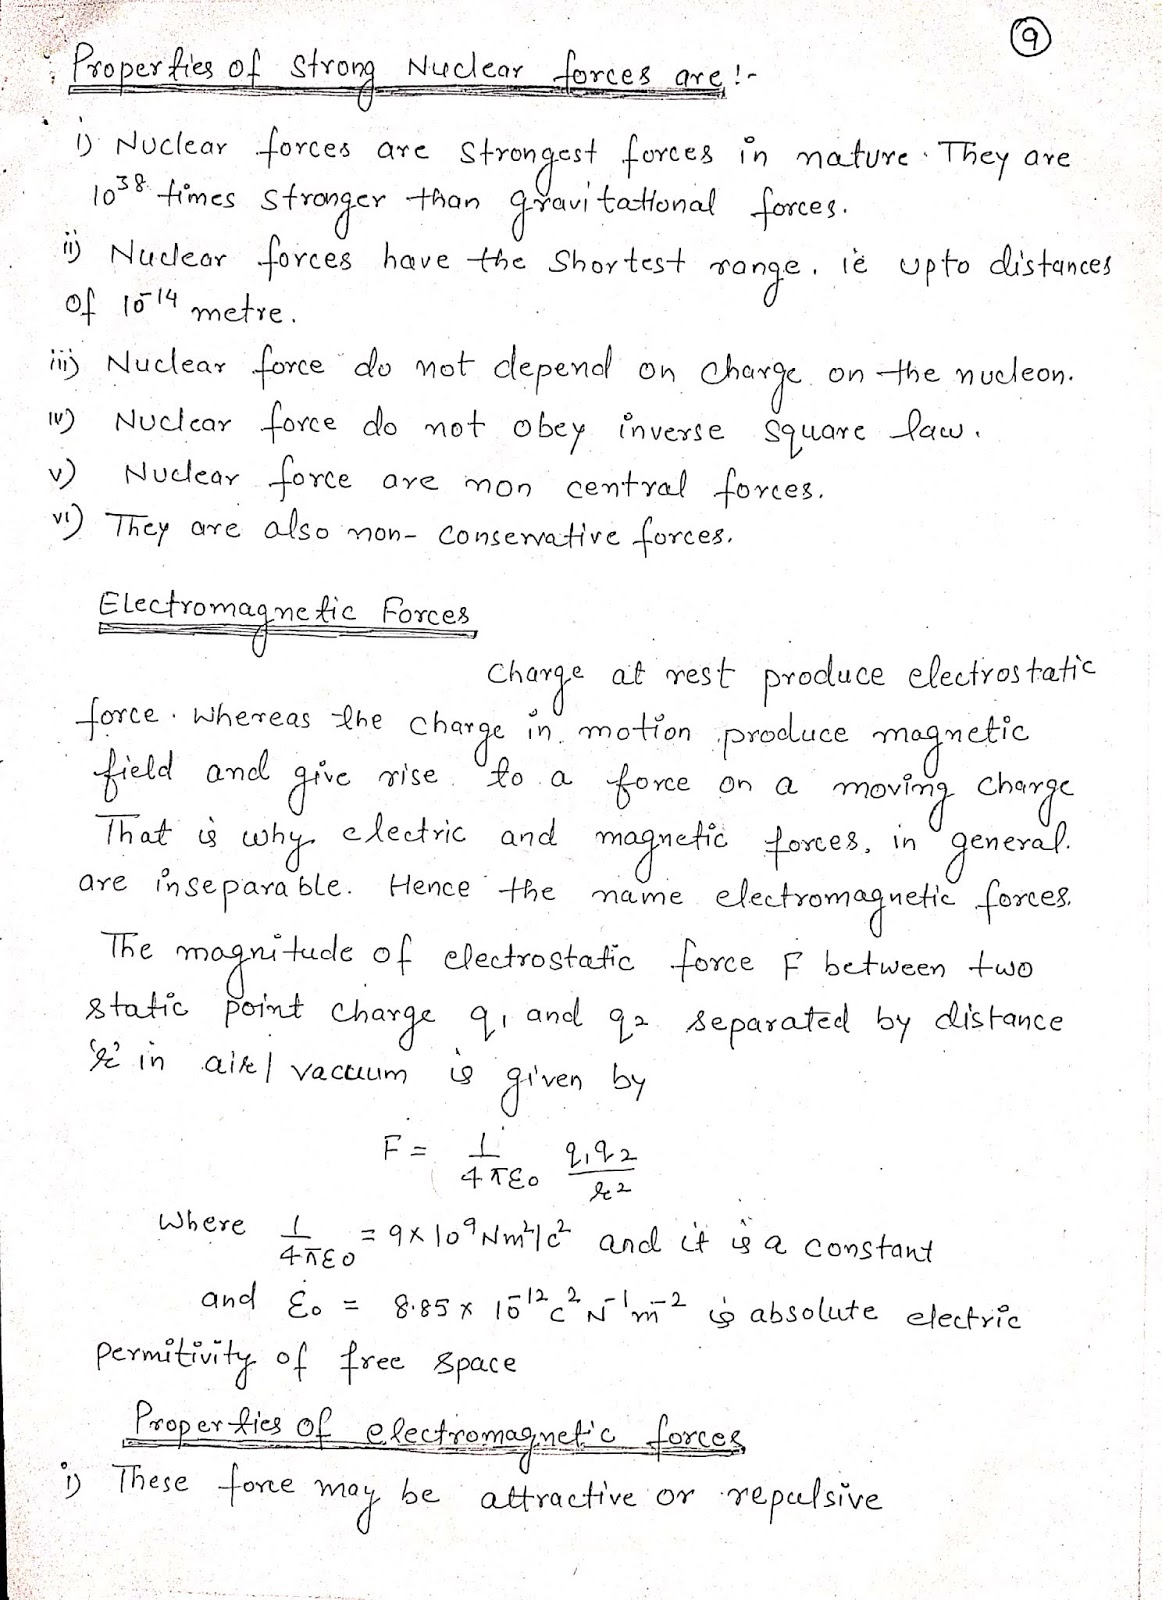 9
Properties of Strong Nuclear forces are :-
i) Nuclear forces are strongest forces in nature. They are
10³⁸ times stronger than gravitational forces.
ii) Nuclear forces have the shortest range. ie upto distances
of 10⁻¹⁴ metre.
iii) Nuclear force do not depend on charge on the nucleon.
iv) Nuclear force do not obey inverse square law.
v) Nuclear force are non central forces.
vi) They are also non-conservative forces.
Electromagnetic Forces
Charge at rest produce electrostatic
force. Whereas the charge in motion produce magnetic
field and give rise to a force on a moving charge
That is why electric and magnetic forces, in general.
are inseparable. Hence the name electromagnetic forces.
The magnitude of electrostatic force F between two
static point charge q₁ and q₂ separated by distance
'r' in air/vacuum is given by
F = 1/4πε₀ q₁q₂/r²
Where 1/4πε₀ = 9×10⁹ Nm²/c² and it is a constant
and ε₀ = 8.85 × 10⁻¹² c² N⁻¹ m⁻² is absolute electric
permitivity of free space
Properties of electromagnetic forces
i) These force may be attractive or repulsive